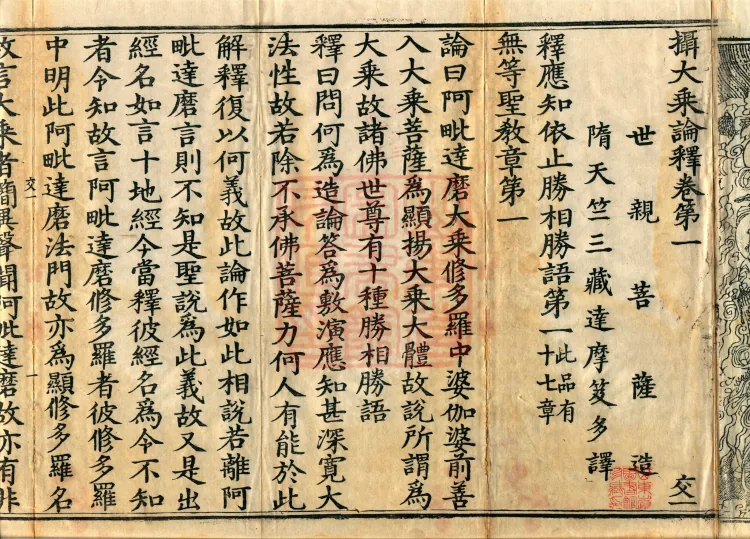 攝大乘論釋卷第一 交一
世親菩薩造
隋天竺三藏達摩笈多譯
釋應知依止勝相勝語第一此品有十七章
無等聖教章第一
論曰阿毗達磨大乘修多羅中婆伽婆前善
入大乘菩薩為顯揚大乘大體故說所謂為
大乘故諸佛世尊有十種勝相勝語
釋曰問何為造論答為敷演應知甚深寬大
法性故若除不承佛菩薩力何人有能於此
解釋復以何義故此論作如此相說若離阿
毗達磨言則不知是聖說為此義故又是出
經名如言十地經今當釋彼經名為令不知
者令知故言阿毗達磨修多羅者彼修多羅
中明此阿毗達磨法門故亦為顯修多羅名
交一 一
故言大乘者簡異聲聞阿毗達磨故亦有非